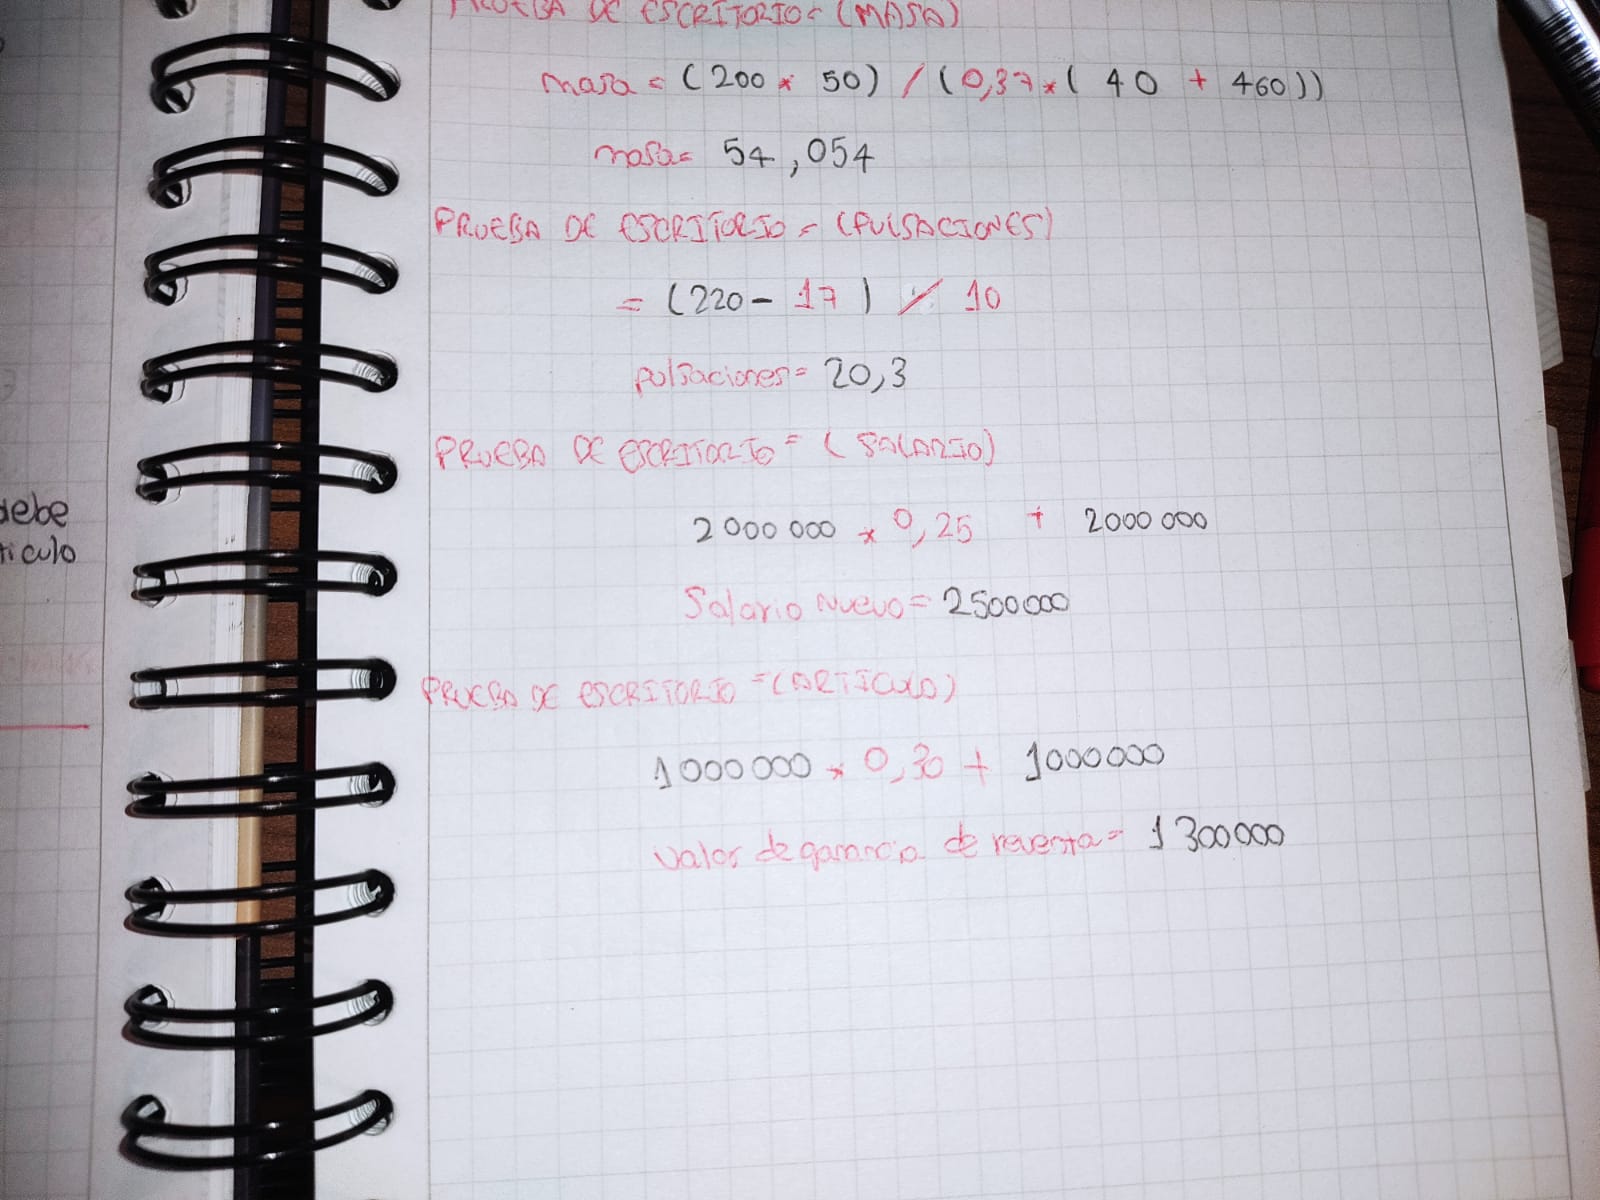 PRUEBA DE ESCRITORIO = (MASA)
masa = (200 * 50) / (0,37 * ( 40 + 460))
masa= 54,054
PRUEBA DE ESCRITORIO = (PULSACIONES)
= (220 - 17 ) / 10
pulsaciones= 20,3
PRUEBA DE ESCRITORIO = (SALARIO)
2000 000 * 0,25 + 2000 000
Salario Nuevo = 2500 000
PRUEBA DE ESCRITORIO = (ARTICULO)
1000 000 * 0,30 + 1000000
valor de ganancia de reventa= 1 300000
debe
ticulo